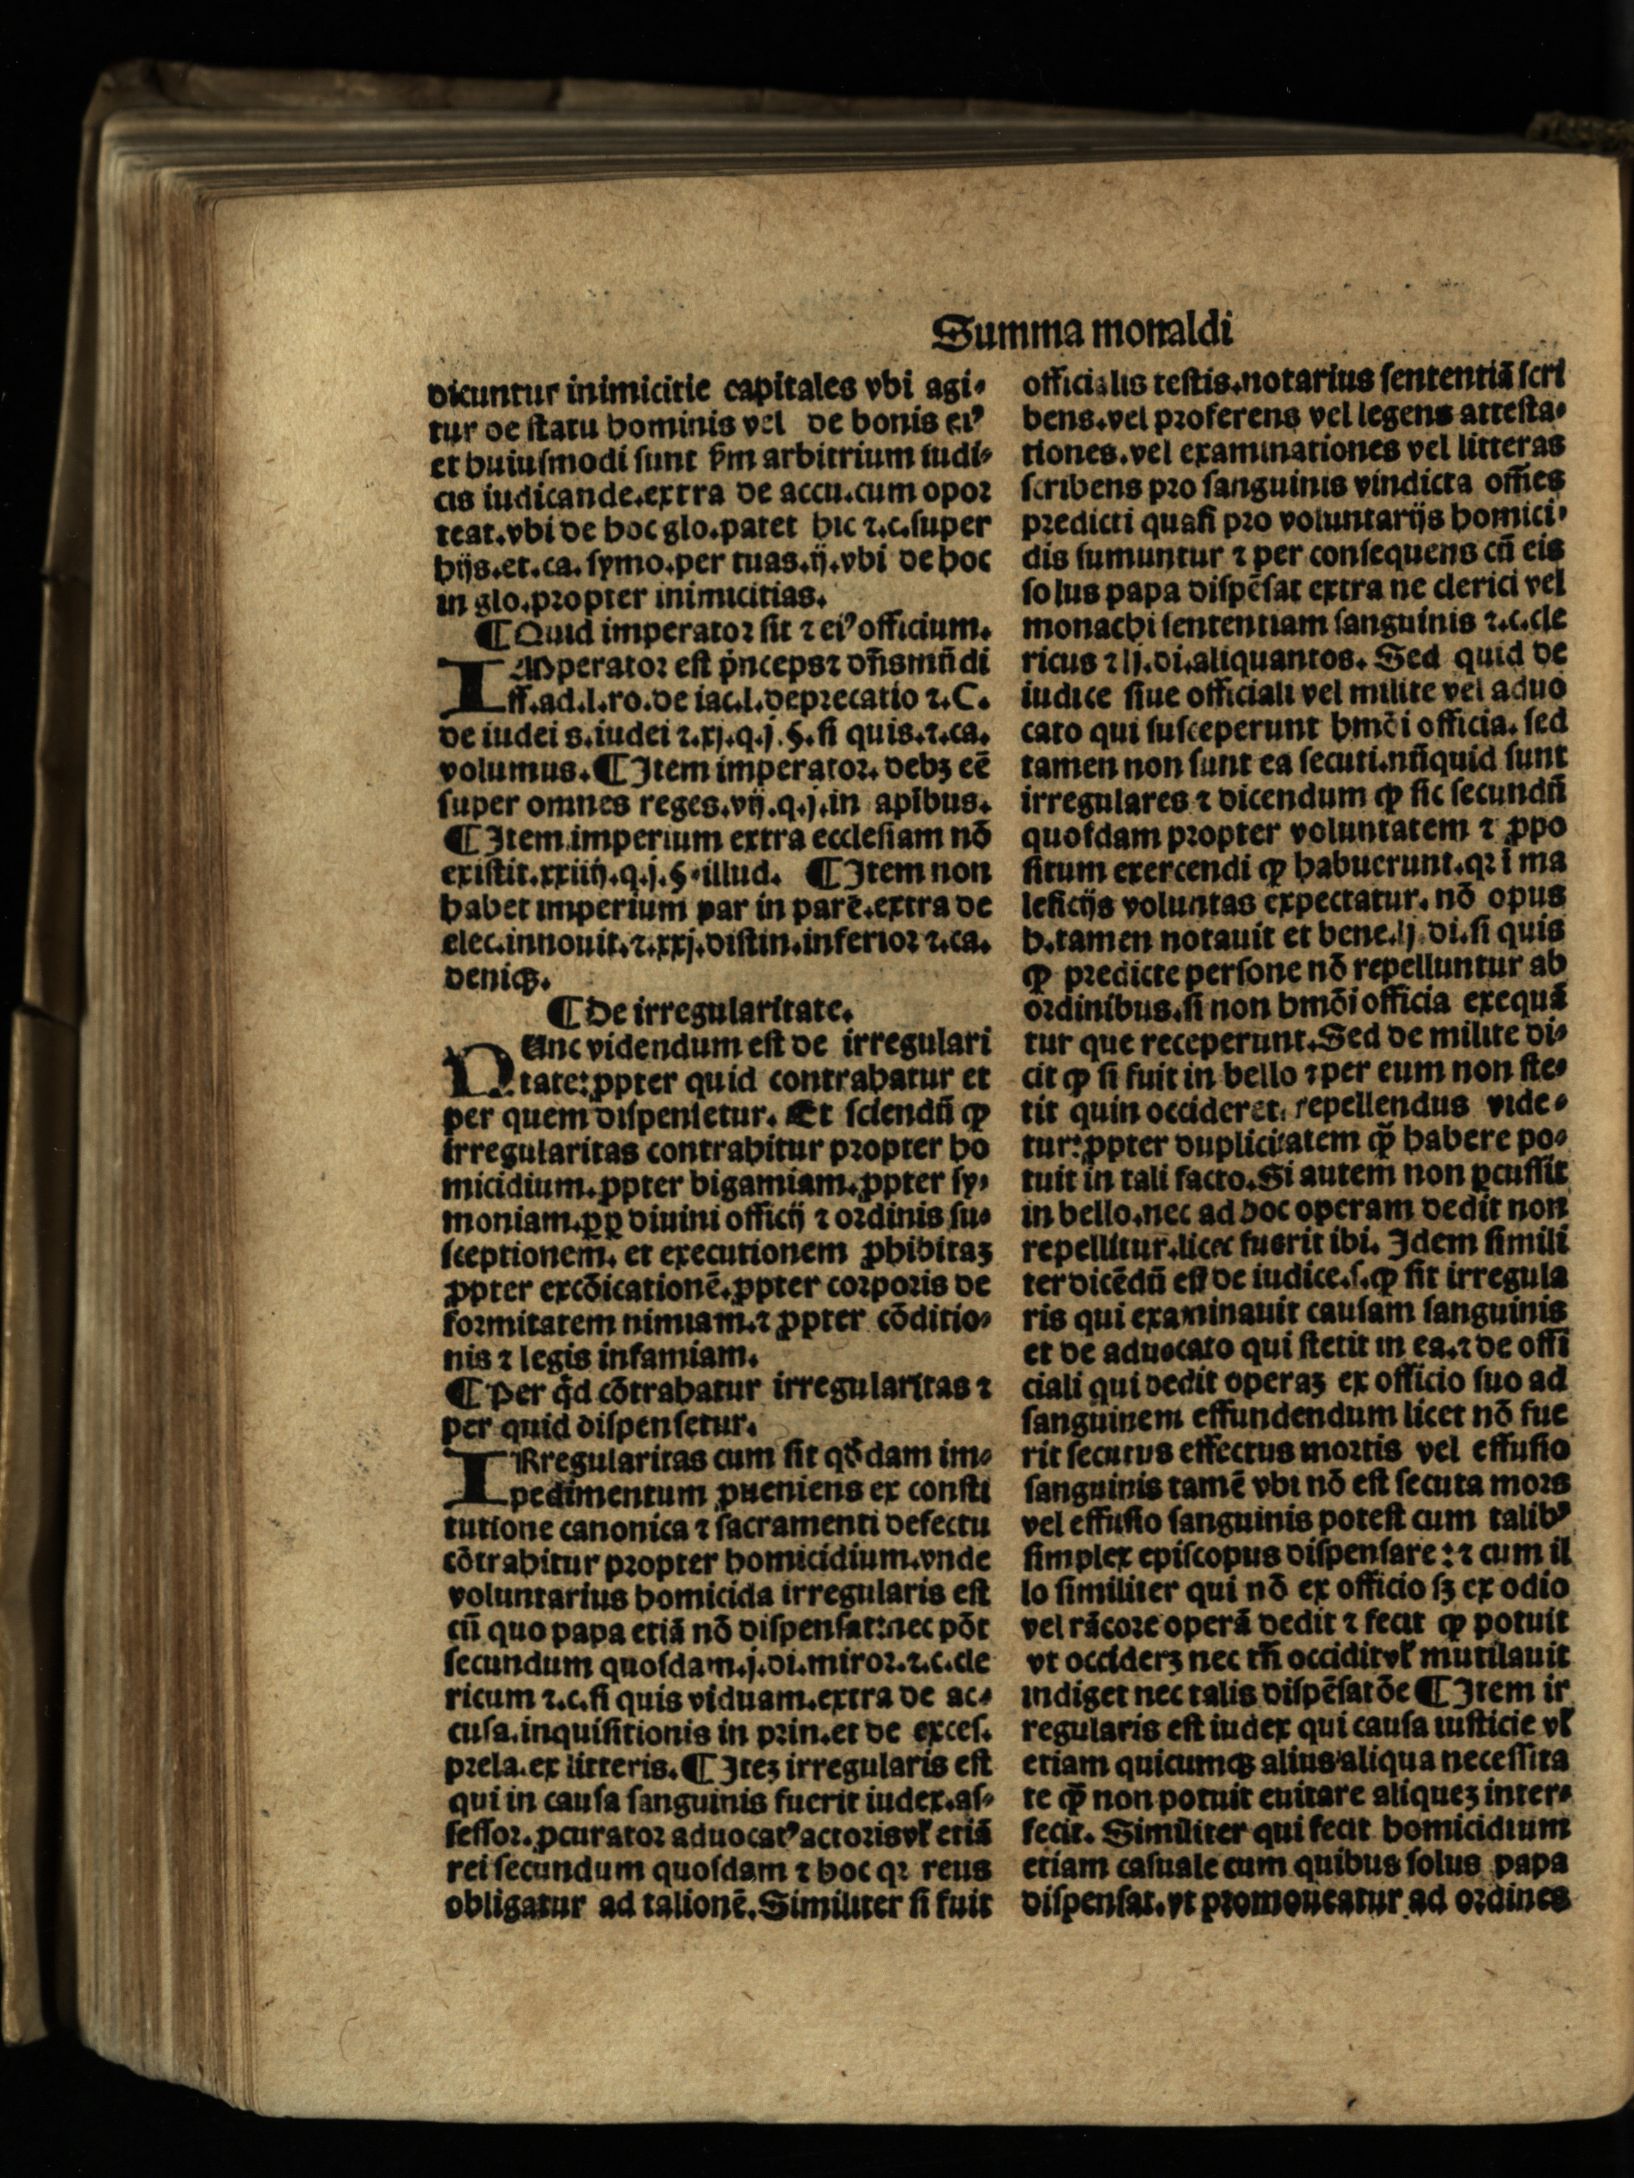 Summa monaldi
dicuntur inimicitie capitales vbi agi-
tur de statu hominis vel de bonis eiꝰ
et huiusmodi sunt ẜm arbitrium iudi-
cis iudicande.extra de accu.cum opor
teat.vbi de hoc glo.patet hic ⁊.c.super
hijs.et.ca.symo.per tuas.ij.vbi de hoc
in glo.propter inimicitias.
¶Quid imperator sit ⁊ eiꝰ officium.
IMperator est p̀nceps⁊ dn̄smūdi
ff.ad.l.ro.de iac.l.deprecatio ⁊.C.
de iudei s.iudei ⁊.xj.q.j.§.si quis.⁊.ca.
volumus.¶Item imperator.debꝫ eē
super omnes reges.vij.q.j.in apibus.
¶Item imperium extra ecclesiam nō
existit.xxiiij.q.j.§.illud. ¶Item non
habet imperium par in parē.extra de
elec.innouit.⁊.xxj.distin.inferior ⁊.ca.
deniqꝫ.
¶De irregularitate.
NUnc videndum est de irregulari
tate:ꝓpter quid contrahatur et
per quem dispensetur. Et sciendū ꝙ
irregularitas contrahitur propter ho
micidium.ꝓpter bigamiam.ꝓpter sy-
moniam.ꝓꝑ diuini officij ⁊ ordinis su-
sceptionem. et executionem ꝓhibitaꝫ
ꝓpter excōicationē.ꝓpter corporis de
formitatem nimiam.⁊ ꝓpter cōditio-
nis ⁊ legis infamiam.
¶Per q̇d cōtrahatur irregularitas ⁊
per quid dispensetur.
IRregularitas cum sit qōdam im-
pedimentum ꝓueniens ex consti
tutione canonica ⁊ sacramenti defectu
cōtrahitur propter homicidium.vnde
voluntarius homicida irregularis est
cū quo papa etiā nō dispensat:nec pōt
secundum quosdam.j.di.miror.⁊.c.cle
ricum ⁊.c.si quis viduam.extra de ac-
cusa.inquisitionis in prin.et de exces.
prela.ex litteris.¶Iteꝫ irregularis est
qui in causa sanguinis fuerit iudex.as-
sessor.ꝓcurator aduocatꝰactorisvl̛ etiā
rei secundum quosdam ⁊ hoc qꝛ reus
obligatur ad talionē.Similiter si fuit
officialis testis.notarius sententiā scri
bens.vel proferens vel legens attesta-
tiones.vel examinationes vel litteras
scribens pro sanguinis vindicta om̄es
predicti quasi pro voluntarijs homici-
dis sumuntur ⁊ per consequens cū eis
solus papa dispēsat extra ne clerici vel
monachi sententiam sanguinis ⁊.c.cle
ricus ⁊ lj.di.aliquantos. Sed quid de
iudice siue officiali vel milite vel aduo
cato qui susceperunt hmōi officia. sed
tamen non sunt ea secuti.nūquid sunt
irregulares ⁊ dicendum ꝙ sic secundū
quosdam propter voluntatem ⁊ ꝓpo
situm exercendi ꝙ habuerunt.qꝛ ī ma
leficijs voluntas expectatur. nō opus
h.tamen notauit et bene.lj.di.si quis
ꝙ predicte persone nō repelluntur ab
ordinibus.si non hmōi officia exequā
tur que receperunt.Sed de milite di-
cit ꝙ si fuit in bello ⁊per eum non ste-
tit quin occideret. repellendus vide-
tur:ꝓpter duplicitatem ꝙ̄ habere po-
tuit in tali facto.Si autem non ꝑcussit
in bello.nec ad hoc operam dedit non
repellitur.licet fuerit ibi. Idem simili
ter dicēdū est de iudice.s.ꝙ sit irregula
ris qui examinauit causam sanguinis
et de aduocato qui stetit in ea.⁊ de offi
ciali qui dedit operaꝫ ex officio suo ad
sanguinem effundendum licet nō fue
rit secutus effectus mortis vel effusio
sanguinis tamē vbi nō est secuta mors
vel effusio sanguinis potest cum talibꝰ
simplex episcopus dispensare:⁊ cum il
lo similiter qui nō ex officio sꝫ ex odio
vel rācore operā dedit ⁊ fecit ꝙ potuit
vt occiderꝫ nec tn̄ occiditvl̛ mutilauit
indiget nec talis dispēsatōe ¶Item ir
regularis est iudex qui causa iusticie vl̛
etiam quicumqꝫ alius aliqua necessita
te ꝙ̄ non potuit euitare aliqueꝫ inter-
fecit. Similiter qui fecit homicidium
etiam casuale cum quibus solus papa
dispensat.vt promoueatur ad ordines